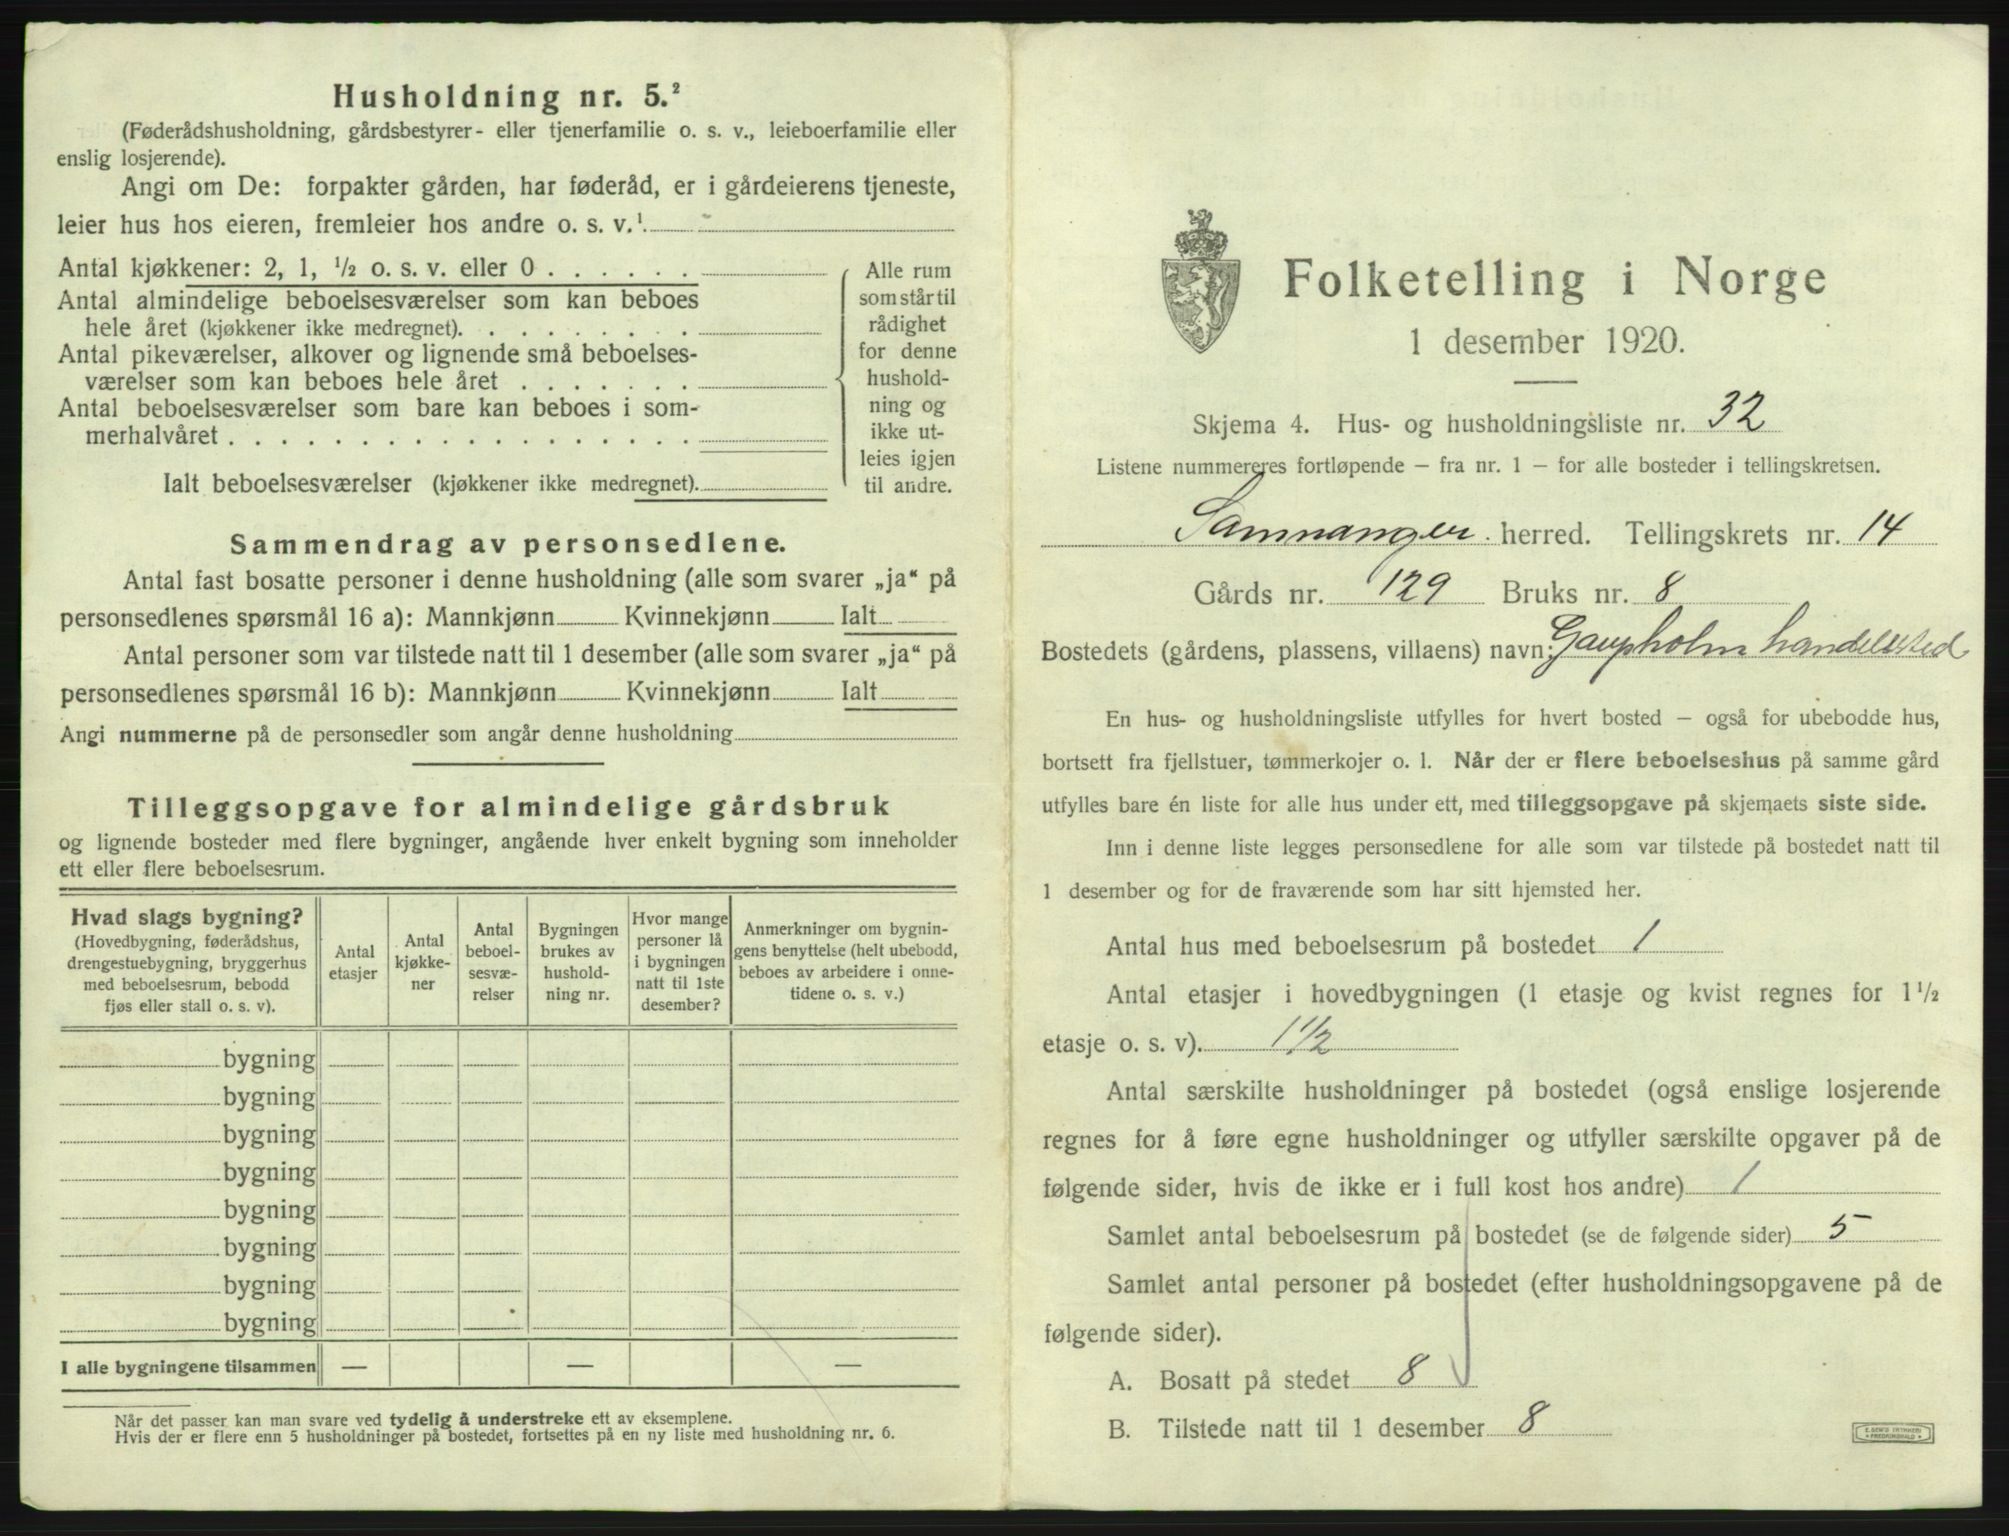 Husholdning nr. 5.²
(Føderådshusholdning, gårdsbestyrer- eller tjenerfamilie o. s. v., leieboerfamilie eller
enslig losjerende).
Angi om De: forpakter gården, har føderåd, er i gårdeierens tjeneste,
leier hus hos eieren, fremleier hos andre o. s. v.¹
Antal kjøkkener: 2, 1, ½ o. s. v. eller 0 . . . . . .
Antal almindelige beboelsesværelser som kan beboes
hele året (kjøkkener ikke medregnet). . . . . . . . .
Antal pikeværelser, alkover og lignende små beboelses-
værelser som kan beboes hele året . . . . . . .
Antal beboelsesværelser som bare kan beboes i som-
merhalvåret . . . . . . . . . . . . . . . . . .
Ialt beboelsesværelser (kjøkkener ikke medregnet).
Alle rum
som står til
rådighet
for denne
hushold-
ning og
ikke ut-
leies igjen
til andre.
Sammendrag av personsedlene.
Antal fast bosatte personer i denne husholdning (alle som svarer „ja“ på
personsedlenes spørsmål 16 a): Mannkjønn Kvinnekjønn Ialt
Antal personer som var tilstede natt til 1 desember (alle som svarer „ja“ på
personsedlenes spørsmål 16 b): Mannkjønn Kvinnekjønn Ialt
Angi nummerne på de personsedler som angår denne husholdning
Tilleggsopgave for almindelige gårdsbruk
og lignende bosteder med flere bygninger, angående hver enkelt bygning som inneholder
ett eller flere beboelsesrum.
Hvad slags bygning?
(Hovedbygning, føderådshus,
drengestuebygning, bryggerhus
med beboelsesrum, bebodd
fjøs eller stall o. s. v).
Antal
etasjer
Antal
kjøkke-
ner
Antal
beboel-
sesvæ-
relser
Bygningen
brukes av
hushold-
ning nr.
Hvor mange
personer lå
i bygningen
natt til 1ste
desember?
Anmerkninger om bygnin-
gens benyttelse (helt ubebodd,
beboes av arbeidere i onne-
tidene o. s. v.)
bygning
bygning
bygning
bygning
bygning
bygning
bygning
bygning
I alle bygningene tilsammen — — —
Når det passer kan man svare ved tydelig å understreke ett av eksemplene.
Hvis der er flere enn 5 husholdninger på bostedet, fortsettes på en ny liste med husholdning nr. 6.
Folketelling i Norge
1 desember 1920.
Skjema 4. Hus- og husholdningsliste nr. 32
Listene nummereres fortløpende – fra nr. 1 – for alle bosteder i tellingskretsen.
Samnanger herred. Tellingskrets nr. 14
Gårds nr. 129 Bruks nr. 8
Bostedets (gårdens, plassens, villaens) navn: Gaupholm handelssted
En hus- og husholdningsliste utfylles for hvert bosted – også for ubebodde hus,
bortsett fra fjellstuer, tømmerkojer o. l. Når der er flere beboelseshus på samme gård
utfylles bare én liste for alle hus under ett, med tilleggsopgave på skjemaets siste side.
Inn i denne liste legges personsedlene for alle som var tilstede på bostedet natt til
1 desember og for de fraværende som har sitt hjemsted her.
Antal hus med beboelsesrum på bostedet 1
Antal etasjer i hovedbygningen (1 etasje og kvist regnes for 1½
etasje o. s. v). 1½
Antal særskilte husholdninger på bostedet (også enslige losjerende
regnes for å føre egne husholdninger og utfyller særskilte opgaver på de
følgende sider, hvis de ikke er i full kost hos andre) 1
Samlet antal beboelsesrum på bostedet (se de følgende sider) 5
Samlet antal personer på bostedet (efter husholdningsopgavene på de
følgende sider).
A. Bosatt på stedet 8
B. Tilstede natt til 1 desember 8